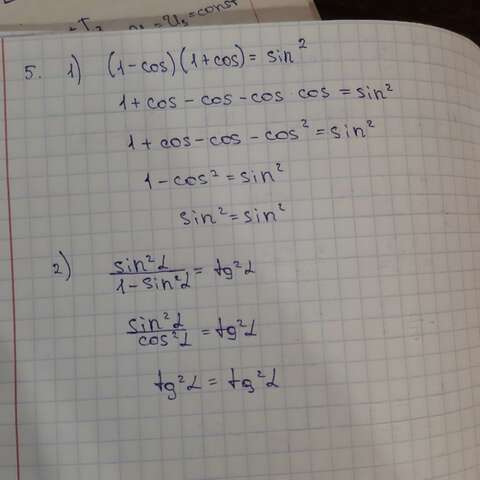 = U₃ = const
5. 1) (1-cos)(1+cos) = sin²
1 + cos - cos - cos · cos = sin²
1 + cos - cos - cos² = sin²
1 - cos² = sin²
sin² = sin²
2) sin²α / 1 - sin²α = tg²α
sin²α / cos²α = tg²α
tg²α = tg²α